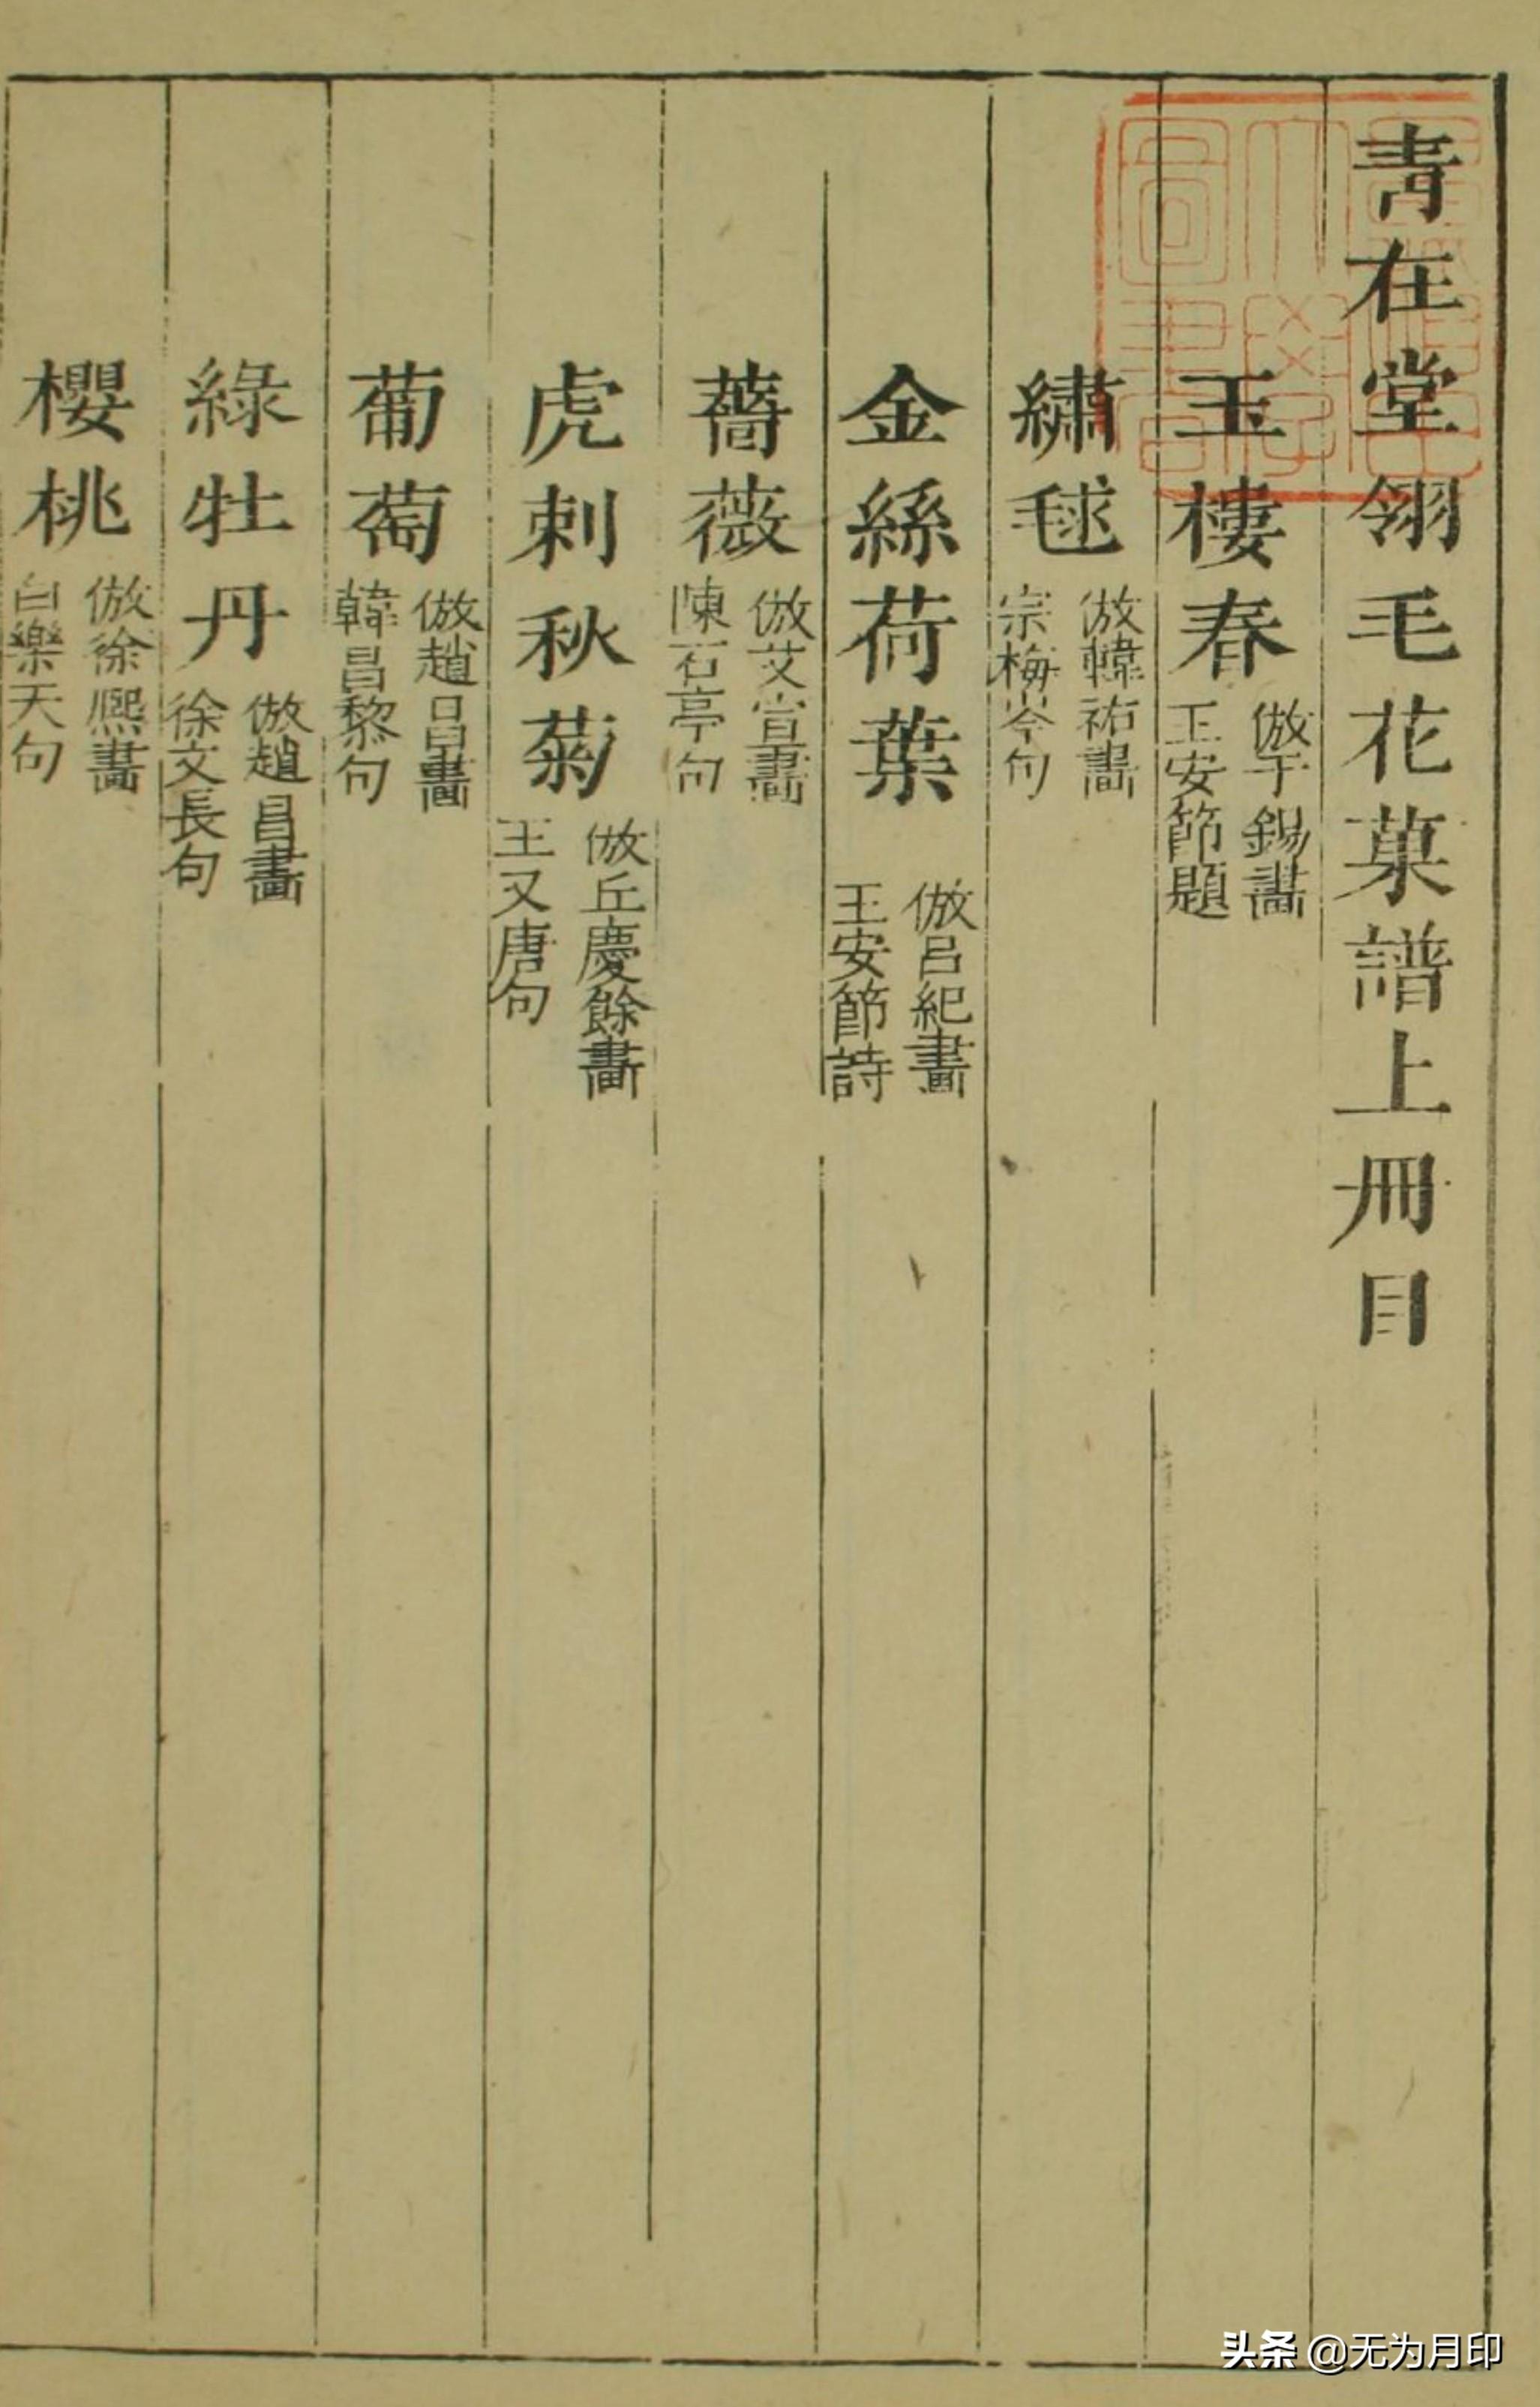 青在堂翎毛花菓譜上冊目
玉樓春
倣于錫畵
王安節題
繡毬
倣韓祐畵
宗梅岑句
金絲荷葉
倣呂紀畵
王安節詩
薔薇
倣艾宣畵
陳石亭句
虎刺秋菊
倣丘慶餘畵
王又唐句
葡萄
倣趙昌畵
韓昌黎句
綠牡丹
倣趙昌畵
徐文長句
櫻桃
倣徐熈畵
白樂天句
头条 @无为月印